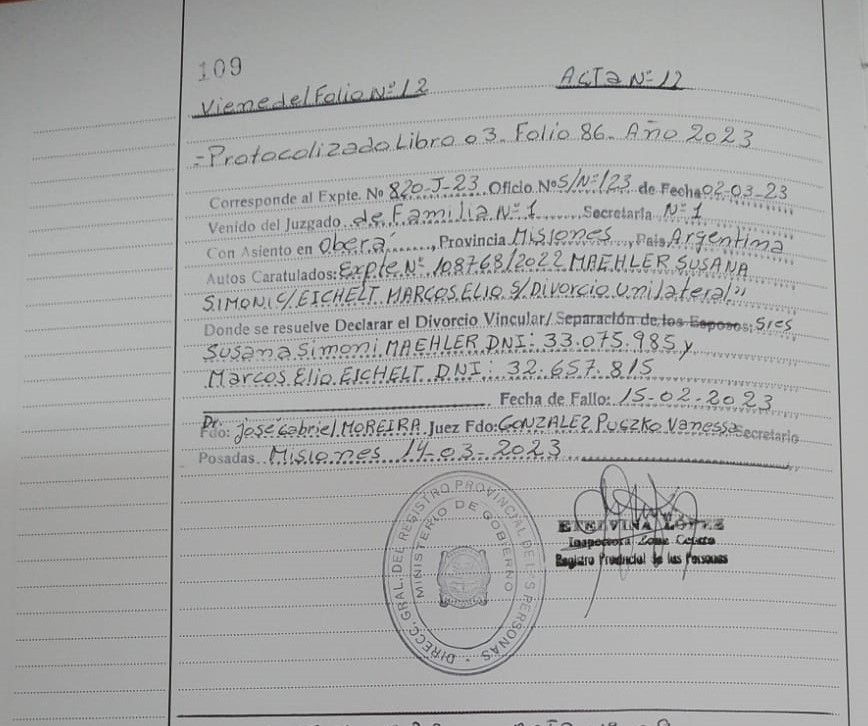 109
Viene del Folio Nº 12 ACTA Nº 12
= Protocolizado Libro 03. Folio 86. Año 2023
Corresponde al Expte. No 820-J-23 Oficio Nº S/Nº/23 de Fecha 02-03-23
Venido del Juzgado de Familia Nº 1 Secretaria Nº 1
Con Asiento en Oberá, Provincia Misiones, Pais Argentina
Autos Caratulados: Expte Nº 108768/2022 MAEHLER SUSANA
SIMONI C/ EICHELT MARCOS ELIO S/ Divorcio Unilateral"
Donde se resuelve Declarar el Divorcio Vincular/ Separación de los Esposos: Sres
Susana Simoni MAEHLER DNI: 33.075.985 y
Marcos Elio EICHELT DNI: 32.657.815
Fecha de Fallo: 15-02-2023
Dr.
Fdo: José Gabriel MOREIRA Juez Fdo: GONZALEZ PUCZKO Vanessa Secretario
Posadas Misiones 14-03-2023
DIRECC. GRAL. DEL REGISTRO PROVINCIAL DE L'S PERSONAS
MINISTERIO DE GOBIERNO
LÓPEZ
Inspectora Zona
Registro Provincial de las Personas